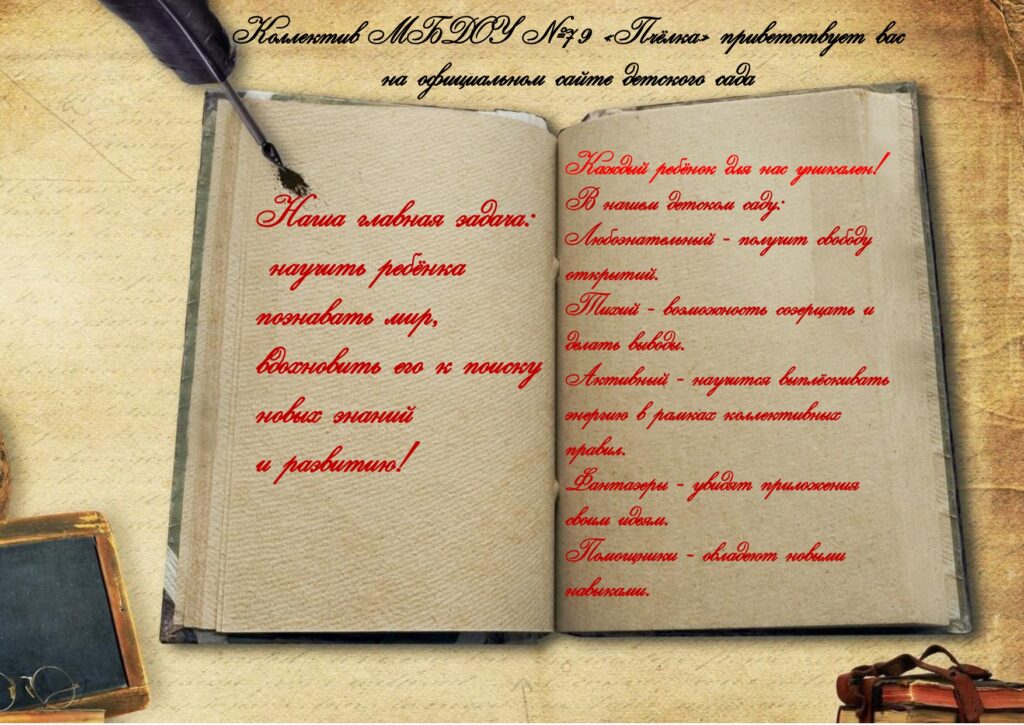 Коллектив МБДОУ №79 «Пчёлка» приветствует вас
на официальном сайте детского сада
Наша главная задача:
научить ребёнка
познавать мир,
вдохновить его к поиску
новых знаний
и развитию!
Каждый ребёнок для нас уникален!
В нашем детском саду:
Любознательный - получит свободу
открытий.
Тихий - возможность созерцать и
делать выводы.
Активный - научится выплёскивать
энергию в рамках коллективных
правил.
Фантазеры - увидят приложения
своим идеям.
Помощники - овладеют новыми
навыками.